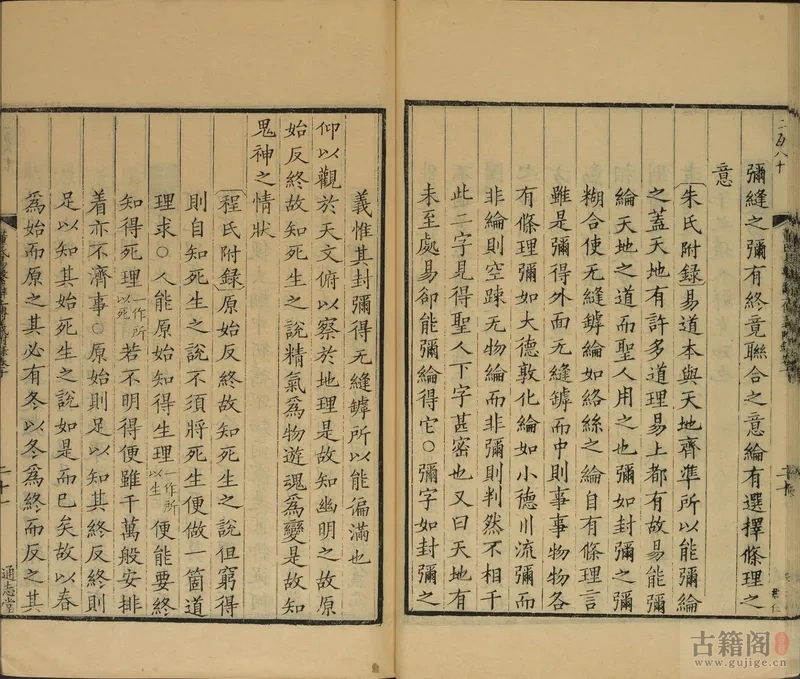 彌縫之彌有終竟聯合之意綸有選擇條理之
意
朱氏附録易道本與天地齊準所以能彌綸
之蓋天地有許多道理易上都有故易能彌
綸天地之道而聖人用之也彌如封彌之彌
糊合使无縫罅綸如絡絲之綸自有條理言
雖是彌得外面无縫罅而中則事事物物各
有條理彌如大德敦化綸如小德川流彌而
非綸則空疎无物綸而非彌則判然不相干
此二字見得聖人下字甚密也又曰天地有
未至處易卻能彌綸得它○彌字如封彌之
義惟其封彌得无縫罅所以能徧滿也
仰以觀於天文俯以察於地理是故知幽明之故原
始反終故知死生之說精氣爲物遊魂爲變是故知
鬼神之情狀
程氏附録原始反終故知死生之說但窮得
則自知死生之說不須將死生便做一箇道
理求○人能原始知得生理一作所以生便能要終
知得死理一作所以死若不明得便雖千萬般安排
着亦不濟事○原始則足以知其終反終則
足以知其始死生之說如是而已矣故以春
爲始而原之其必有冬以冬爲終而反之其
二百八十
二十一
通志堂
古籍阁
www.gujige.cn